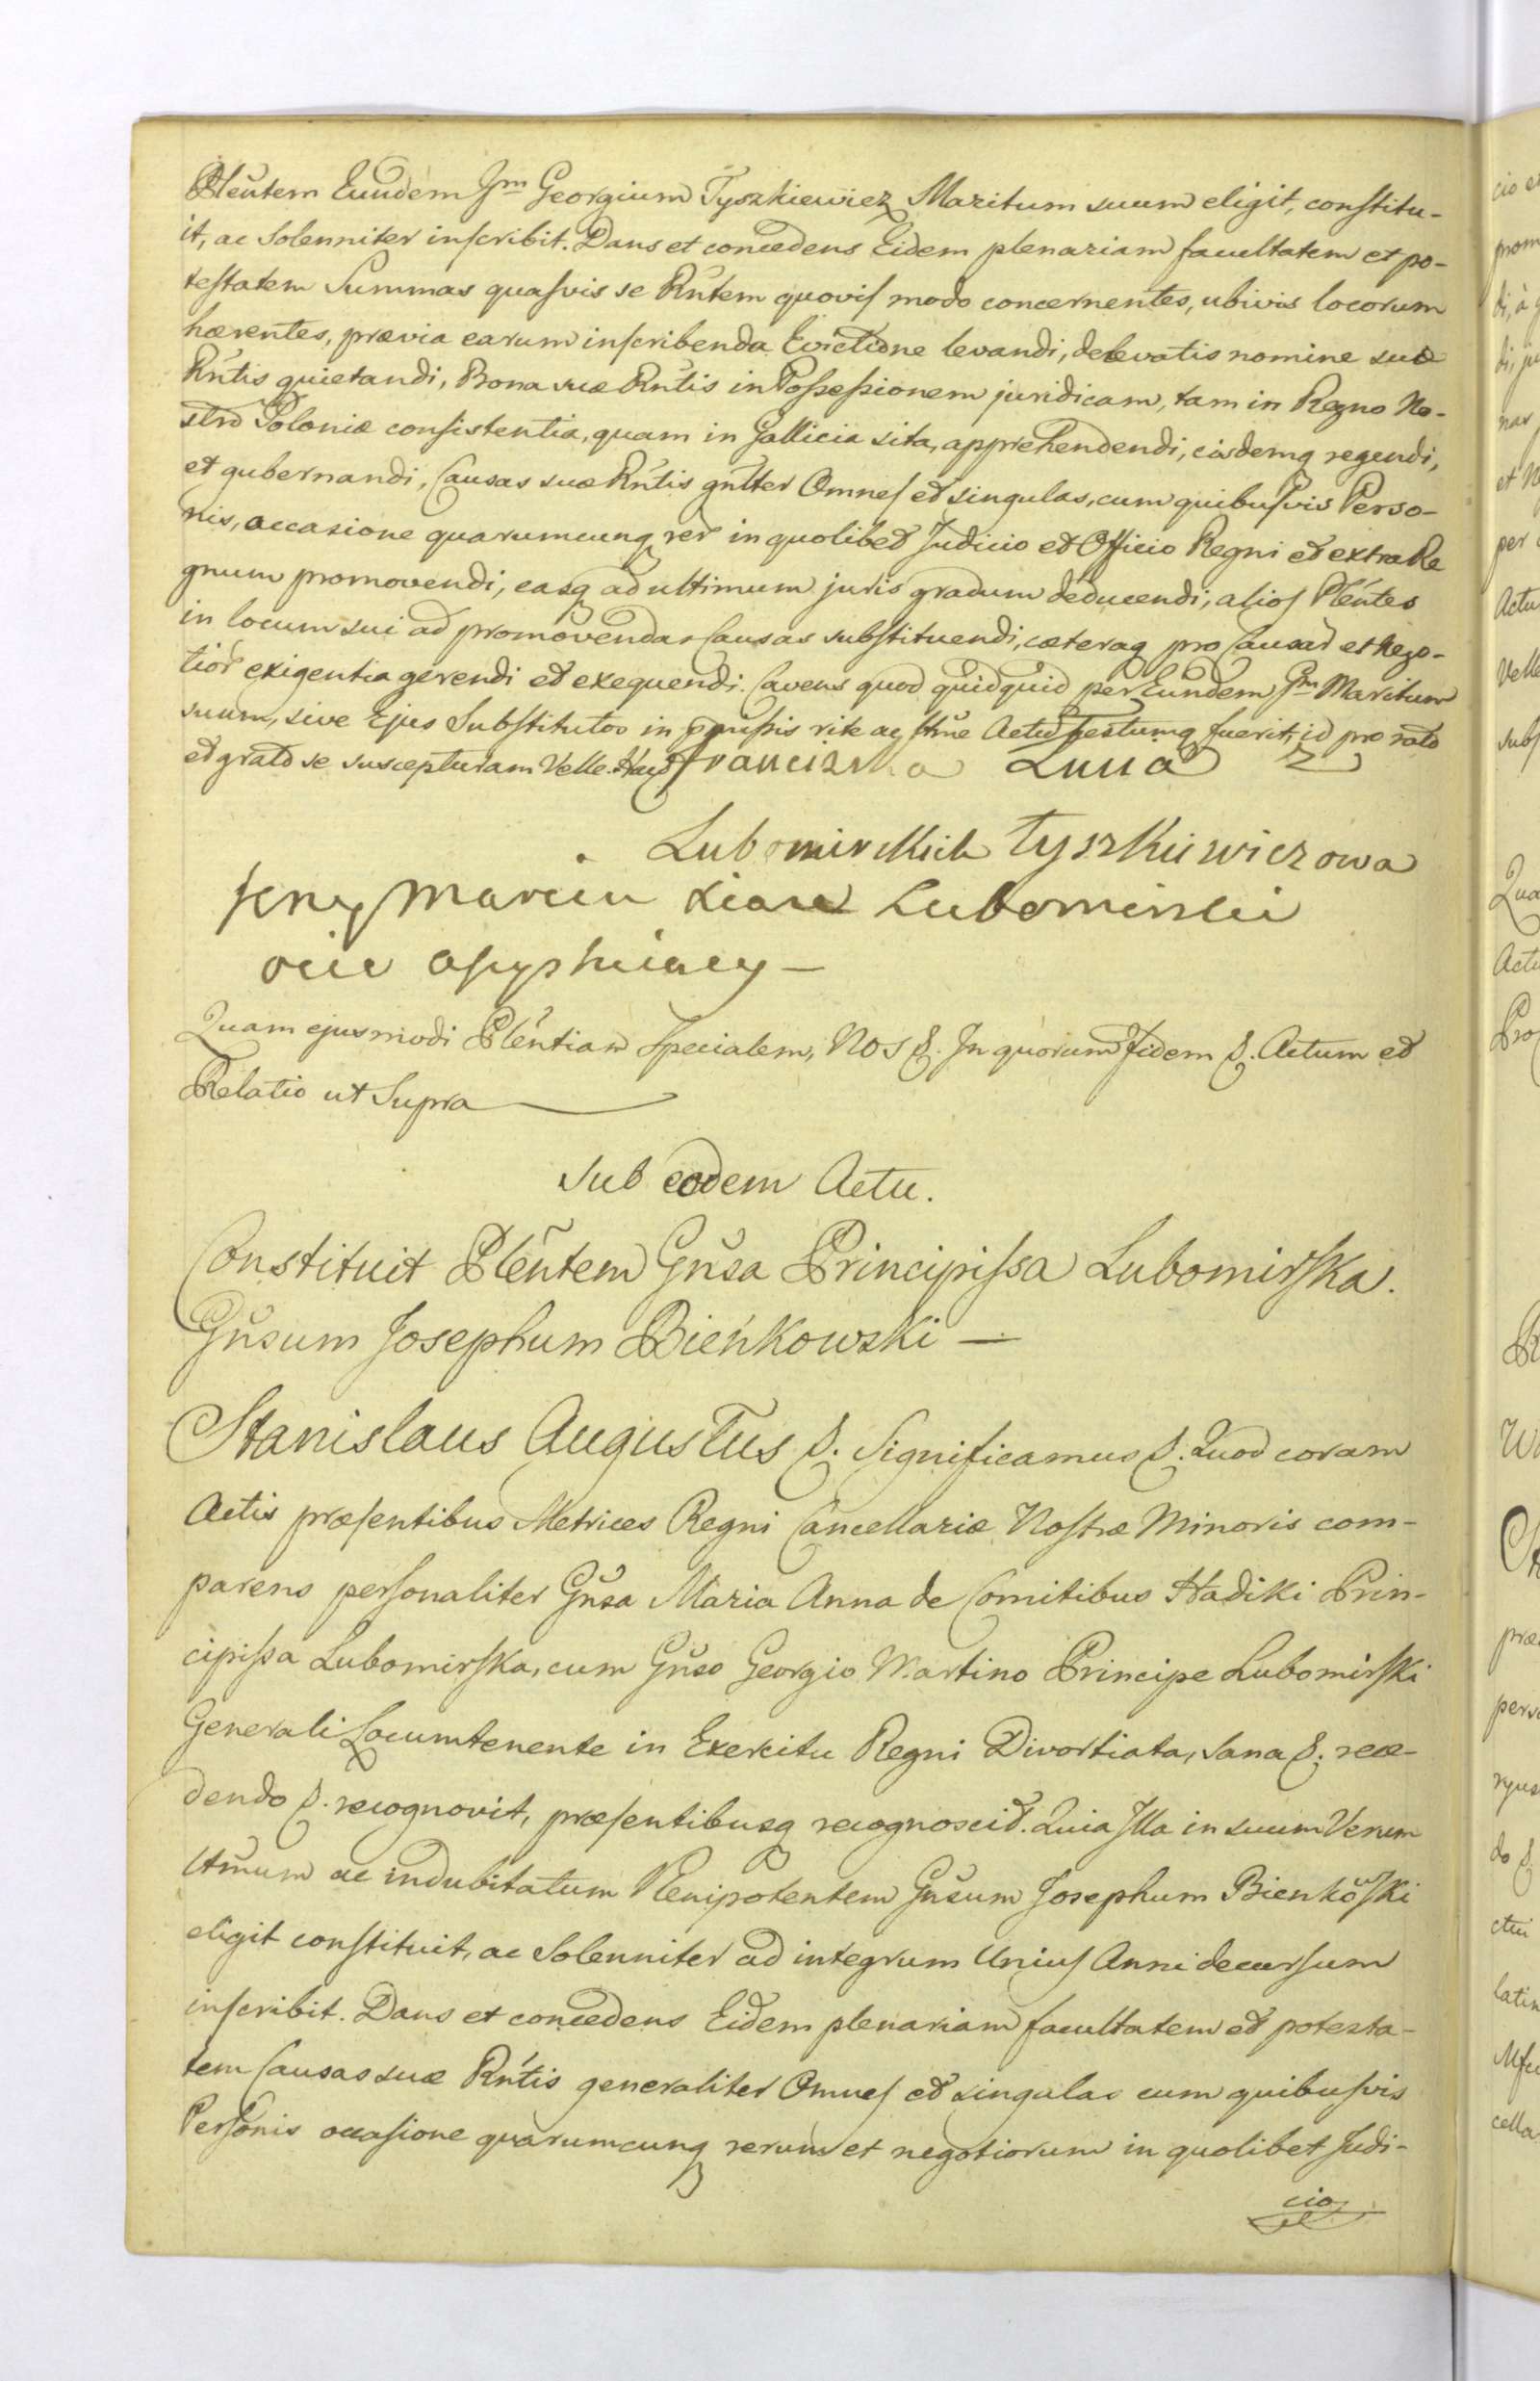 Plentem Eundem Gm Georgium Tyszkiewicz Maritum suum eligit, constitu-
it, ac Solenniter inscribit. Dans et concedens Eidem plenariam facultatem et po-
testatem Summas quasvis se Rntem quovis modo concernentes, ubivis locorum
hærentes, prævia earum inscribenda Evictione levandi, de levatis nomine suæ
Rntis quietandi, Bona suæ Rntis in Possessionem juridicam, tam in Regno No-
stro Poloniæ consistentia, quam in Gallicia sita, apprehendendi, eisdemq regendi,
et gubernandi, Causas suæ Rntis gnlter Omnes et singulas, cum quibusvis Perso-
nis, occasione quarumcunq rer in quolibet Judicio et Officio Regni et extra Re
gnum promovendi, easq ad ultimum juris gradum deducendi, alios Plentes
in locum sui ad promovendas Causas substituendi, cæteraq pro Causar et Nego-
tior exigentia gerendi et exequendi. Cavens quod quidquid per Eundem Gm Maritum
suum, sive Ejus Substitutos in pmissis rite ac ltme Actu gestumq fuerit, id pro rato
et grato se suscepturam Velle. Franciszka Anna
Lubomirskich Tyszkiewiczowa
Jerzy Marcin Lubomirski
Quam ejusmodi Plentiam Specialem, Nos &. In quorum Fidem &. Actum et
Relatio ut Supra
Sub eodem Actu.
Constituit Plentem Gnsa Principissa Lubomirska.
Gnsum Josephum Bieńkowski —
Stanislaus Augustus &. Significamus &. Quod coram
Actis præsentibus Metrices Regni Cancellariæ Nostræ Minoris com-
parens personaliter Gnsa Maria Anna de Comitibus Hadiki Prin-
cipissa Lubomirska, cum Gnso Georgio Martino Principe Lubomirski
Generali Locumtenente in Exercitu Regni Divortiata, sana &. rece-
dendo &. recognovit, præsentibusq recognoscit. Quia Illa in suum Verum
ltmum ac indubitatum Plenipotentem Gnsum Josephum Bienkowski
eligit constituit, ac Solenniter ad integrum Unius Anni decursum
inscribit. Dans et concedens Eidem plenariam facultatem et potesta-
tem Causas suæ Rntis generaliter Omnes et singulas cum quibusvis
Personis occasione quarumcunq rerum et negotiorum in quolibet Judi-
cio